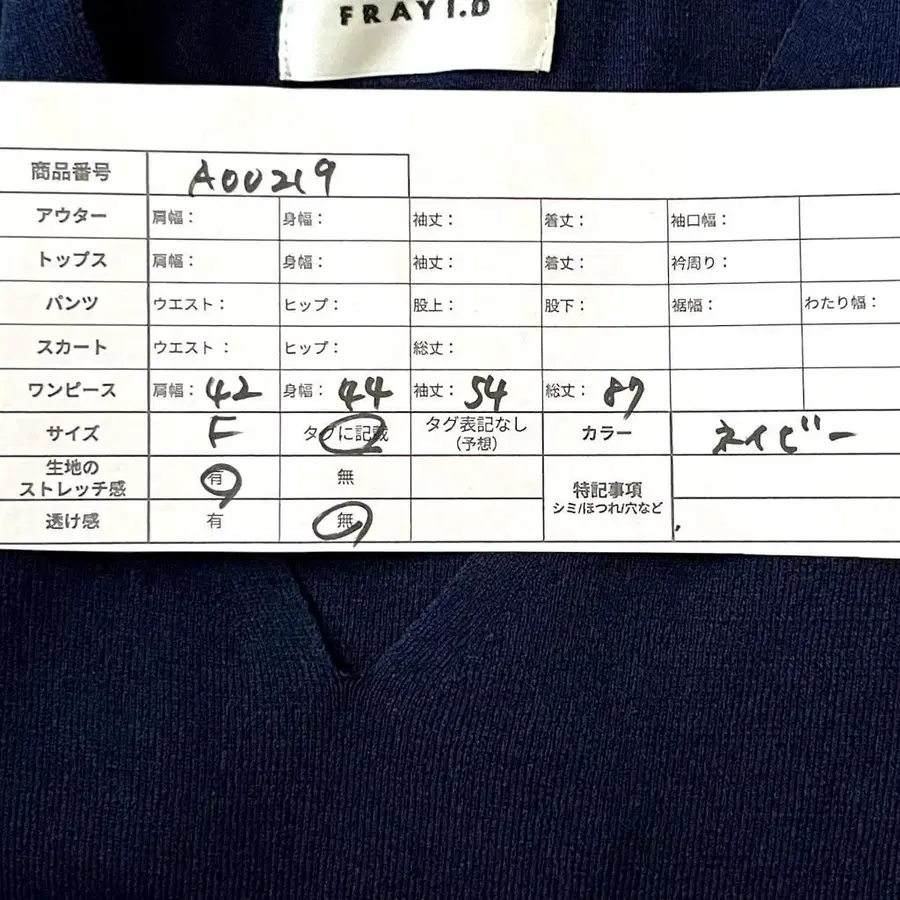 FRAY I.D
商品番号 A00219
アウター 肩幅： 身幅： 袖丈： 着丈： 袖口幅：
トップス 肩幅： 身幅： 袖丈： 着丈： 衿周り：
パンツ ウエスト： ヒップ： 股上： 股下： 裾幅： わたり幅：
スカート ウエスト： ヒップ： 総丈：
ワンピース 肩幅：42 身幅：44 袖丈：54 総丈：87
サイズ F タグに記載 タグ表記なし
（予想）
カラー ネイビー
生地の
ストレッチ感 有 無
特記事項
シミ/ほつれ/穴など
透け感 有 無